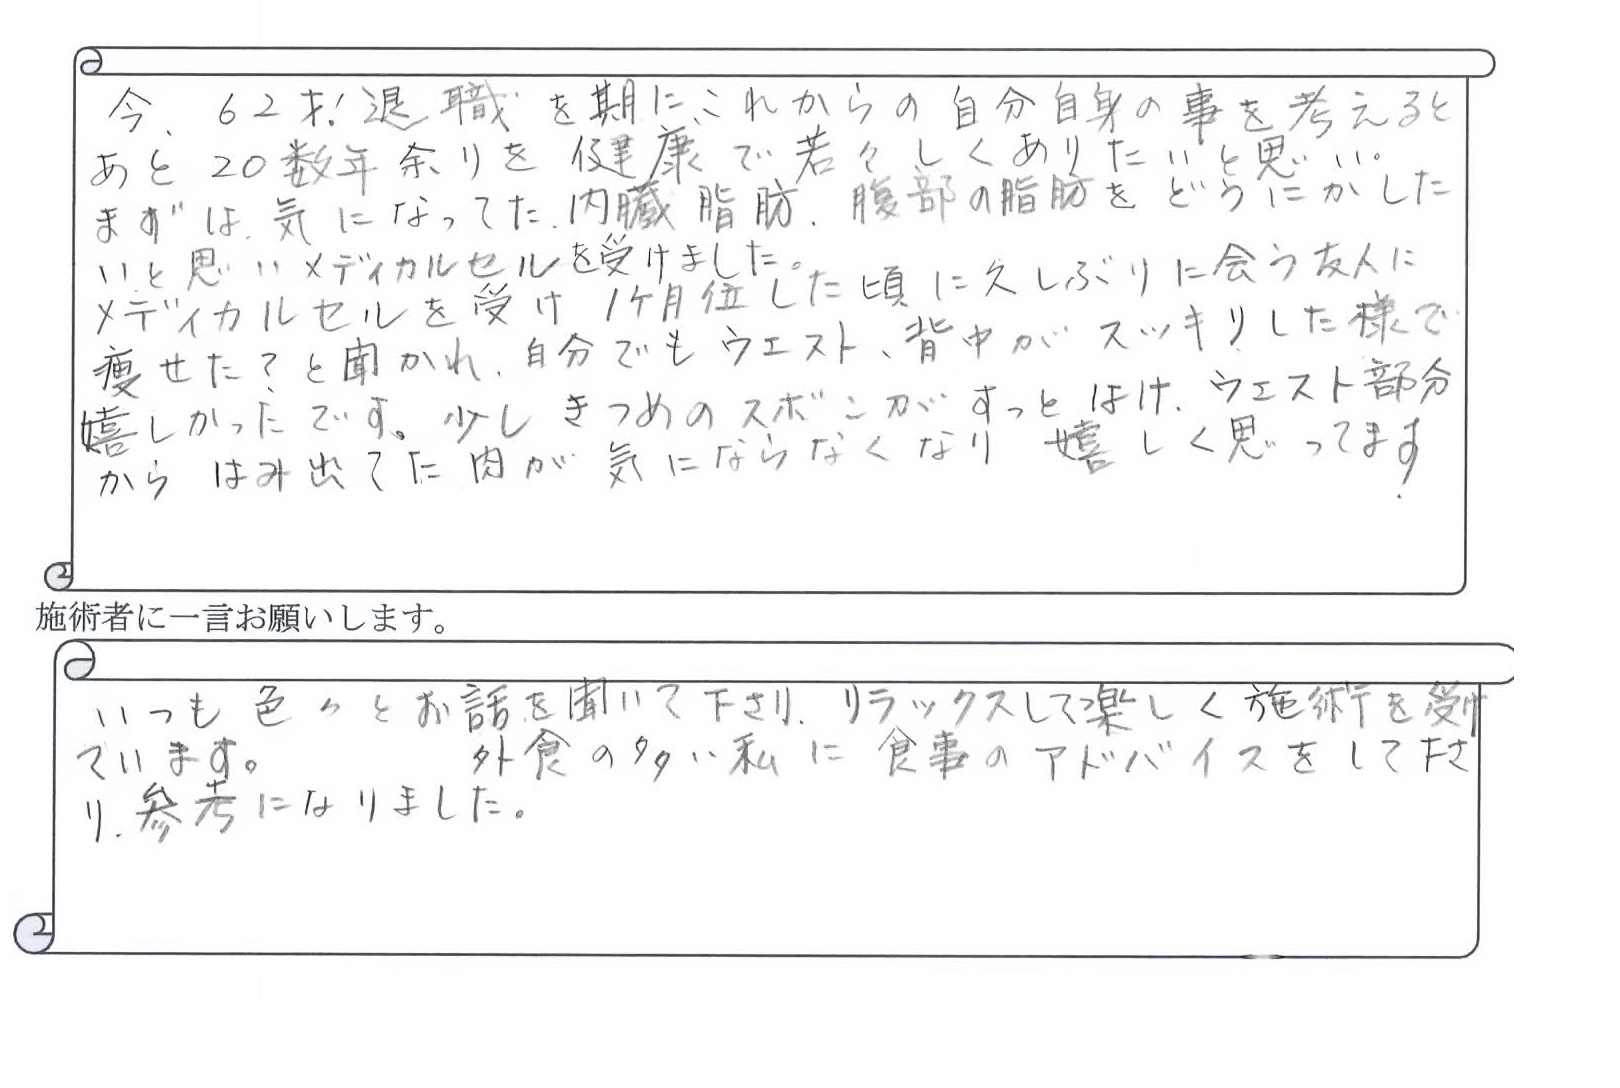 今、62才!退職を期に、これからの自分自身の事を考えると
あと20数年余りを健康で若々しくありたいと思い。
まずは、気になってた、内臓脂肪、腹部の脂肪をどうにかした
いと思いメディカルセルを受けました。
メディカルセルを受け1ケ月位した頃に久しぶりに会う友人に
痩せた?と聞かれ、自分でもウエスト、背中がスッキリした様で
嬉しかったです。少しきつめのズボンがすっとはけ、ウエスト部分
からはみ出てた肉が気にならなくなり嬉しく思ってます!
施術者に一言お願いします。
いつも色々とお話を聞いて下さり、リラックスして楽しく施術を受け
ています。 外食の多い私に食事のアドバイスをして下さ
り、参考になりました。